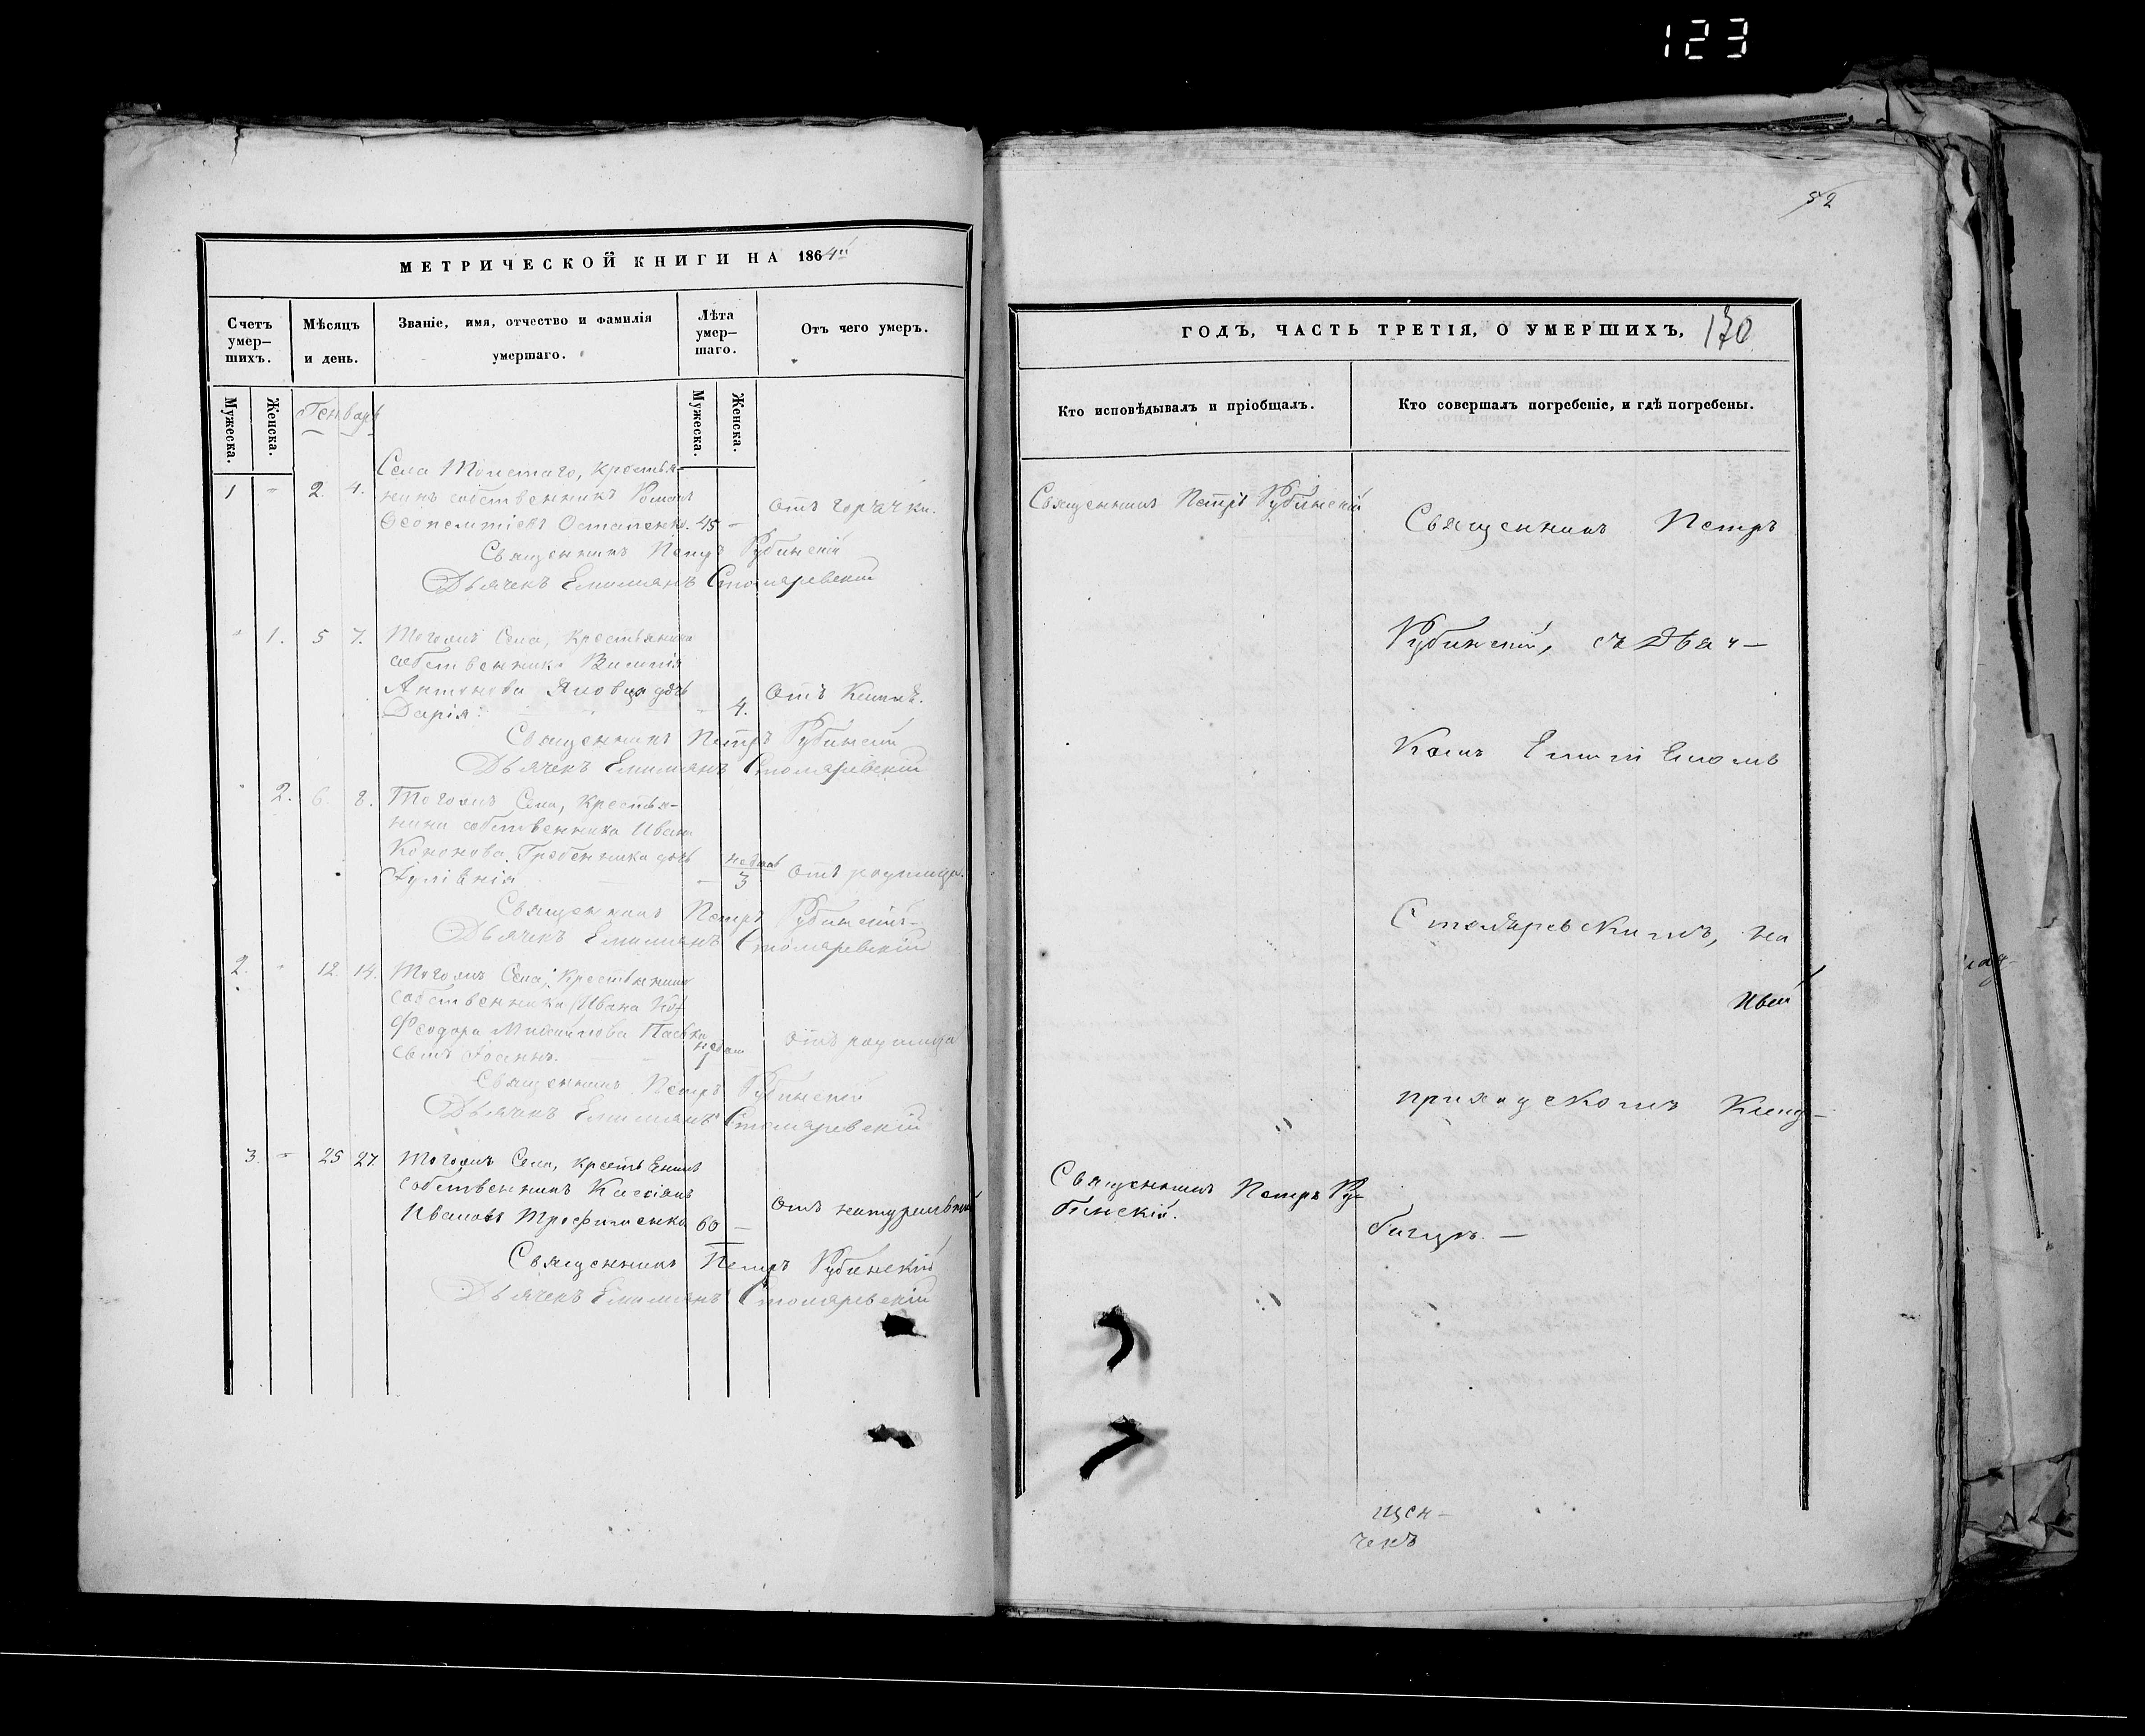 123
МЕТРИЧЕСКОЙ КНИГИ НА 1864й
Счетъ умер-
шихъ.
Мѣсяцъ
и день.
Званіе, имя, отчество и фамилія
умершаго.
Лѣта
умер-
шаго.
Отъ чего умеръ.
Мужеска.
Женска.
Генварь
Мужеска.
Женска.
Села Толстаго, крестья-
1 - 2. 4. нинъ собственникъ Романъ
Остапенко. 45 - Отъ горячки.
Священникъ Петръ Рубинскій
Дьячекъ Емиліянъ Столяревскій
" 1. 5 7. Тогожъ Села, крестьянина
собственника
Антонова Яловца дочь
Дарія. - 4. Отъ Кашля.
Священникъ Петръ Рубинскій
Дьячекъ Емиліянъ Столяревскій
" 2. 6. 8. Тогожъ Села, Крестья-
нина собственника Ивана
Кононова Гребенника дочь
- недель 3 Отъ родимца.
Священникъ Петръ Рубинскій
Дьячекъ Емиліянъ Столяревскій
2. " 12. 14. Тогожъ Села, Крестьянина
собственника Ивана
Феодора
сынъ Іоаннъ. 1 Отъ родимца
Священникъ Петръ Рубинскій
Дьячекъ Емиліянъ Столяревскій
3. " 25 27. Тогожъ Села, крестьянинъ
собственникъ Кассіянъ
Ивановъ Трофименко 60 - Отъ натуральной
Священникъ Петръ Рубинскій
Дьячекъ Емиліянъ Столяревскій
52
ГОДЪ, ЧАСТЬ ТРЕТІЯ, О УМЕРШИХЪ, 170
Кто исповѣдывалъ и пріобщалъ.
Кто совершалъ погребеніе, и гдѣ погребены.
Священникъ Петръ Рубинскій
Священникъ Петръ
Рубинскій, съ Дьяч-
комъ
Столяревскимъ, на
приходскомъ Клад-
Священникъ Петръ Ру-
бинскій.
бищѣ. -
щен-
чекъ